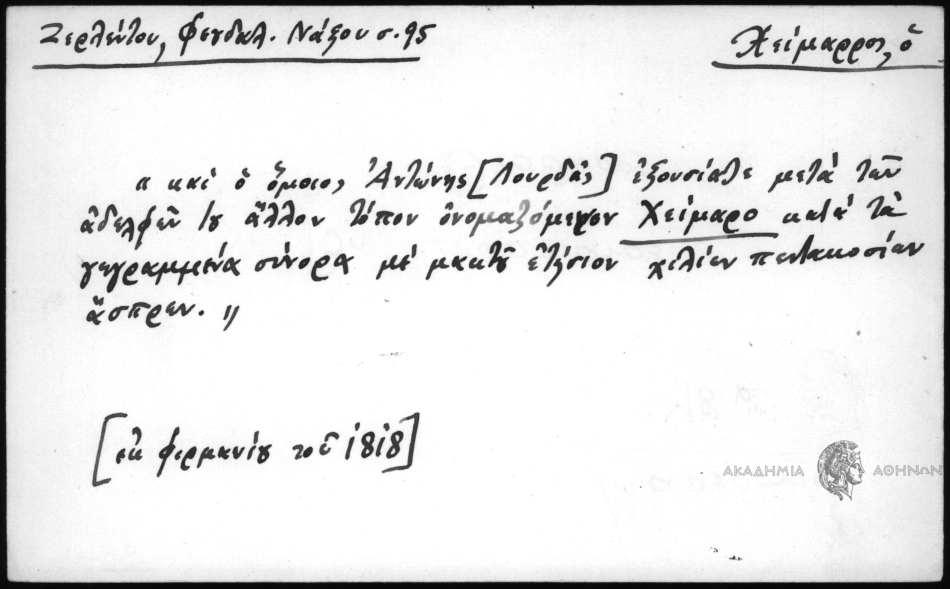 Ζερλέντου, Φεουδαλ. Νάξου σ. 95
Χείμαρρος, ὁ
"καὶ ὁ ὅμοιος Ἀντώνης [Λουρδᾶς] ἐξουσίαζε μετὰ τῶν
ἀδελφῶν του ἄλλον τόπον ὀνομαζόμενον Χείμαρο κατὰ τὰ
γεγραμμένα σύνορα μὲ μακτοῦ ἐτήσιον χιλίων πεντακοσίων
ἄσπρων."
[ἐκ φερμανίου τοῦ 1818]
ΑΚΑΔΗΜΙΑ ΑΘΗΝΩΝ